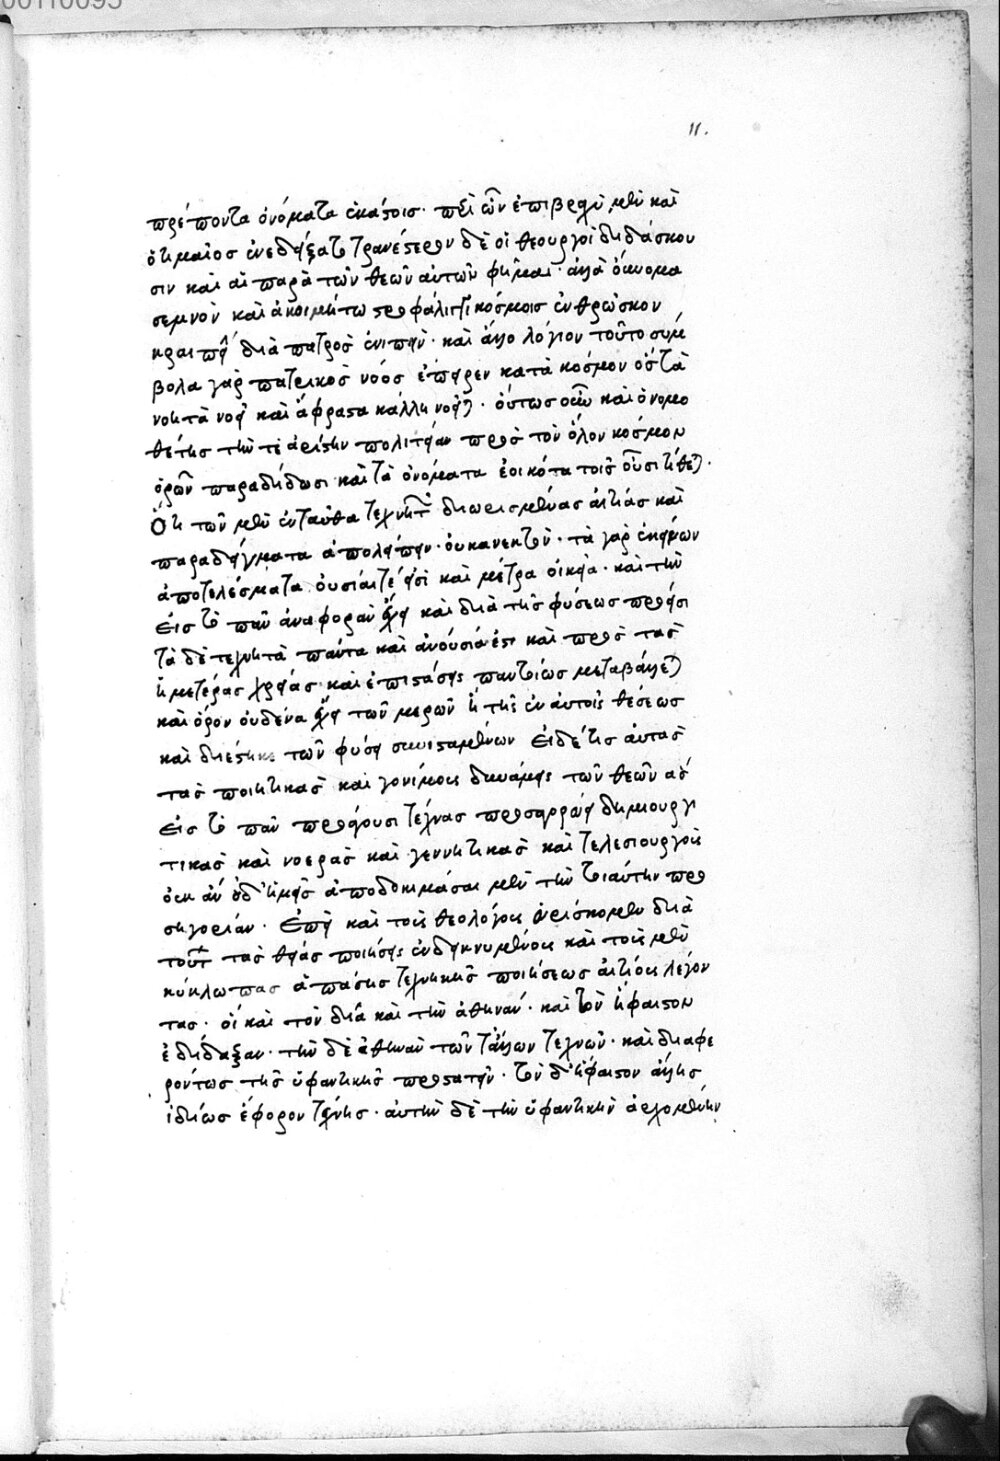 11.
πρέποντα ὀνόματα ἑκάστοις· περὶ ὧν ἐπιβραχὺ μὲν καὶ
ὁ τίμαιος ἐνεδείξατο τρανέστερον δὲ οἱ θεουργοὶ διδάσκου
σιν καὶ αἱ παρὰ τῶν θεῶν αὐτῶν φῆμαι· ἀλλὰ ὄυνομα
σεμνὸν καὶ ἀκοιμήτω στροφάλιγγι κόσμοις ἐνθρῶσκον
κραιπνὴν διὰ πατρὸς ἐνιπὴν· καὶ ἄλλο λόγιον τοῦτο σύμ
βολα γὰρ πατρικὸς νόος ἔσπειρεν κατὰ κόσμον ὃς τὰ
νοητὰ νοεῖ καὶ ἄφραστα κάλλη νοεῖται· ὅυτως οὖν καὶ ὁ νομο
θέτης τὴν τε ἀρίστην πολιτείαν πρὸς τὸν ὅλον κόσμον
ὁρῶν παραδίδωσι καὶ τὰ ὀνόματα ἐοικότα τοῖς οὖσι τίθεται·
Ὅτι τῶν μὲν ἐνταῦθα τεχνητῶν διωρισμένας αἰτίας καὶ
παραδείγματα ἀπολείπειν· ὀυκ ἀνεκτὸν· τὰ γὰρ ἐκείνων
ἀποτελέσματα ὀυσίαι τέ εἰσὶ καὶ μέτρα οἰκεῖα· καὶ τὴν
εἰς τὸ πᾶν ἀναφορὰν ἔχει καὶ διὰ τῆς φύσεως πρόεισι
τὰ δὲ τεχνητὰ πάντα καὶ ἀνούσιά ἐστι καὶ πρὸς τὰς
ἡμετέρας χρείας· καὶ ἐπιστάσεις παντοίως μεταβάλλεται
καὶ ὅρον ὀυδένα ἔχει τῶν μερῶν ἢ τῆς ἐν αὐτοῖς θέσεως
καὶ διέστηκε τῶν φύσει συνισταμένων Εἰ δέ τις ἀυτὰς
τὰς ποιητικὰς καὶ γονίμους δυνάμεις τῶν θεῶν ἃς
εἰς τὸ πᾶν προάγουσι τέχνας προσαγορεύει δημιουργι
τικὰς καὶ νοερὰς καὶ γεννητικὰς καὶ τελεσιουργοὺς
ὀυκ ἂν ὀυδ' ἡμεῖς ἀποδοκιμάσαιμεν τὴν τοιάυτην προ
σηγορίαν· Ἐπεὶ καὶ τοὺς θεολόγους ἑυρίσκομεν διὰ
τούτων τὰς θείας ποιήσεις ἐνδεικνυμένους καὶ τοὺς μὲν
κύκλωπας ἁπάσης τεχνικῆς ποιήσεως αἰτίους λέγον
τας· οἳ καὶ τὸν δία καὶ τὴν ἀθηνᾶν· καὶ τὸν ἥφαιστον
ἐδίδαξαν· τὴν δὲ ἀθηνᾶν τῶν τἄλλων τεχνῶν· καὶ διαφε
ρόντως τῆς ὑφαντικῆς προστατεῖν· τὸν δ' ἥφαιστον ἄλλης
ἰδίως ἔφορον τέχνης· ἀυτὴν δὲ τὴν ὑφαντικὴν ἀρχομένην